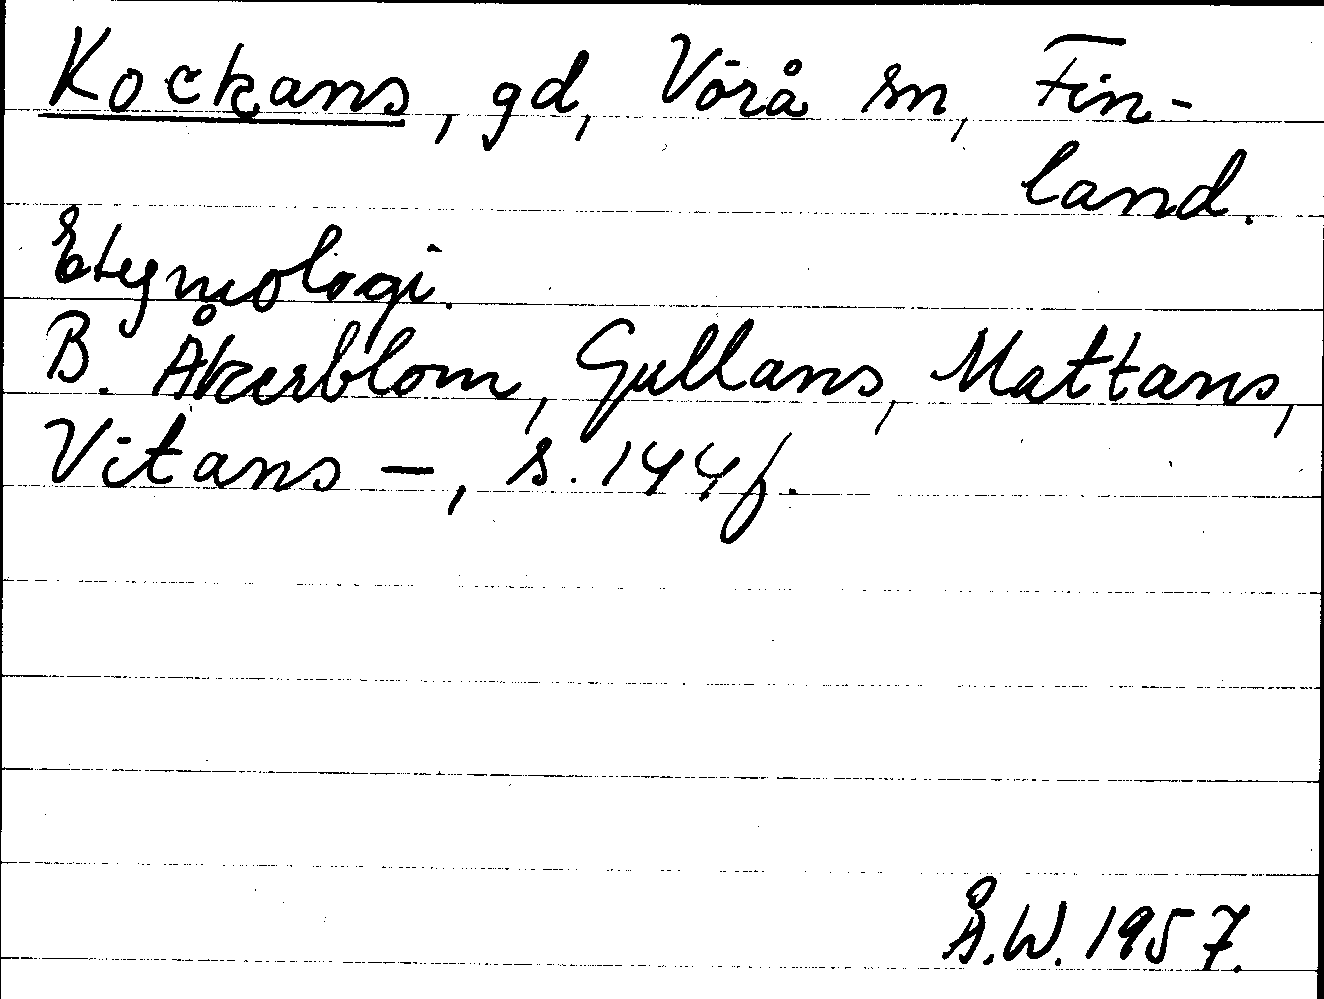 Kockans, gd, Vörå sn, Fin-
land.
Etymologi.
B. Åkerblom, Gullans, Mattans,
Vitans –, s. 144f.
Å.W. 1957.